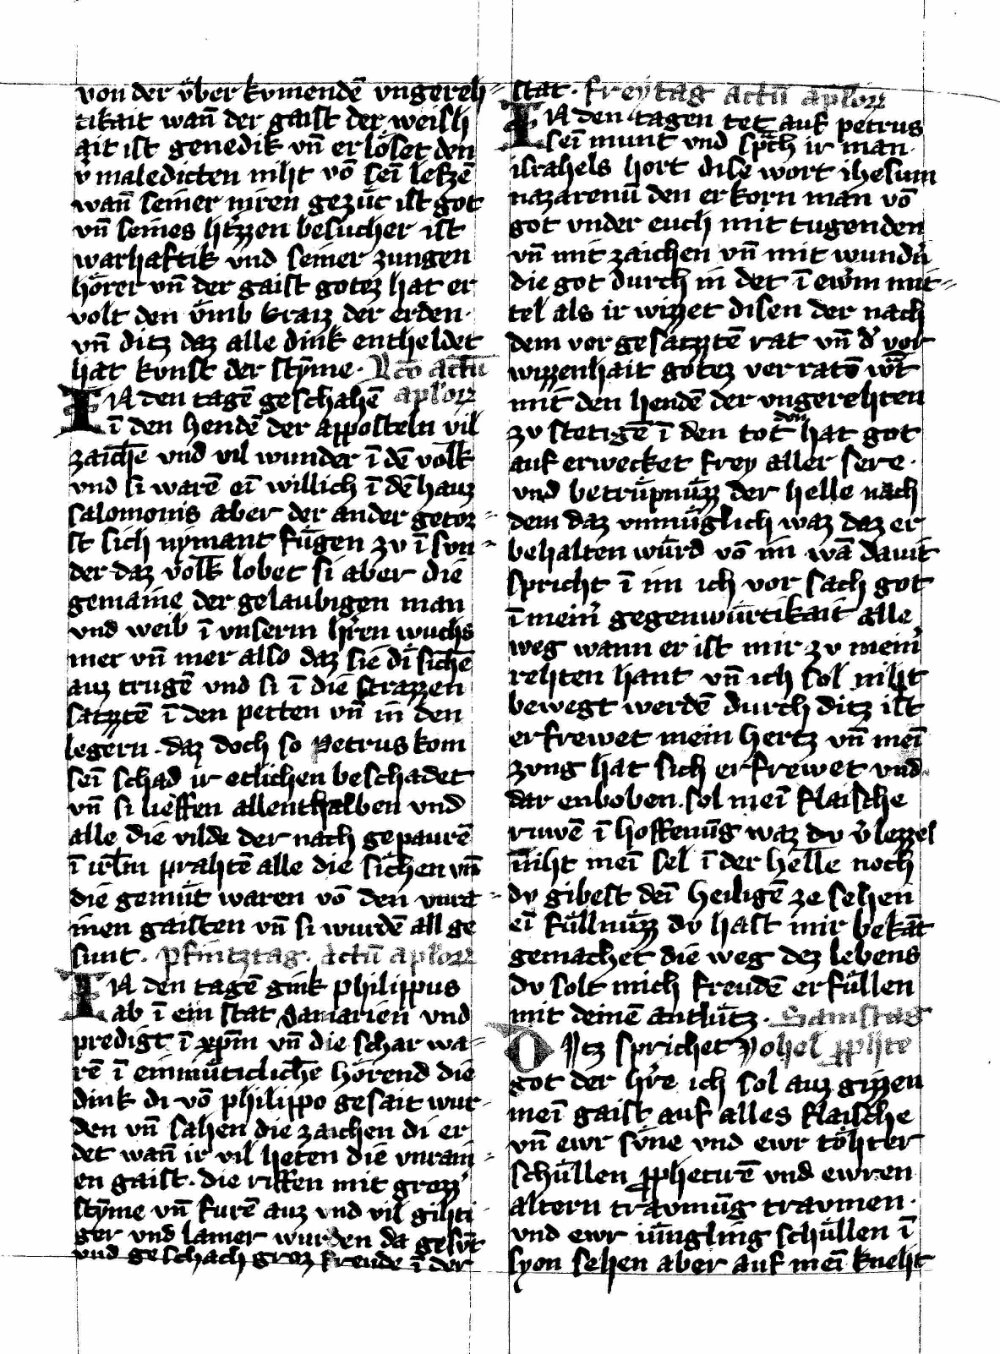 von der v̈ber kvmendē vngereh
tikait wan̄ der gaist der weisli
ait ist genedik vn̄ er löset den
v̓maledicten niht vō sei̅ lefzē
wan̄ seiner niren gezűc ist got
vn̄ seines h̓tzzen besucher ist
warhaftik vnd seiner zungen
hörer vn̄ der gaist gotez hat er
volt den v̈mb kraiz der erden ·
vn̄ ditz daz alle dink entheldet
hat konst der stẏme · Lc̄o actū
IN den tagē geschahē apl'or
i̅ den hendē der apposteln vil
zaichē vnd vil wunder i̅ dē volk
vnd si warē ei̅ willich i̅ dē hauz
salomonis aber der ander getor
st sich nẏmant fűgen zv i̅ svn
der daz volk lobet si aber die
gemaine der gelaubigen man
vnd weib i̅ vnserm h̓ren wuchs
mer vn̄ mer also daz sie di sichē
auz trugē vnd si i̅ die strazzen
satztē i̅ den petten vn̄ in den
legern · daz doch so Petrus kom
sei̅ schad ir etlichen beschadet
vn̄ si lieffen allenthalben vnd
alle die vilde der nach gepaurē
i̅ irl̄m prahtē alle die sichen vn̄
die gemüt waren vō den vnrai
nien gaisten vn̄ si wurdē all ge
sunt · Pfintztag · Actū apl'or
IN den tagē gink philippus
ab i̅ ein stat Samarien vnd
predigt i̅ xp̄m vn̄ die schar wa
rē i̅ einműticlichē hörend die
dink di vō philippo gesait wur
den vn̄ sahen die zaichen di er
det wan̄ ir vil heten die vnrai
en gaist · die riffen mit grozz̓
stẏme vn̄ furē auz vnd vil gihti
ger vnd lamer wurden da gesűt
vnd geschach groz freude i̅ der
stat · Freytag actū apl'or
IN den tagen tet auf petrus
sei̅ munt vnd sp̄ch ir man ·
israhels hort dise wort ihesum
nazarenū den erkorn man vō
got vnder euch mit tugenden
vn̄ mit zaichen vn̄ mit wund̓n
die got durch in det i̅ ew̓m mit
tel als ir wizzet disen der nach
dem vorgesatztē rat vn̄ d̓ vor
wizzenhait gotez verratē wt̄
mit den hendē der vngerehten
zv stetigē i̅ den tot den hat got
auf erwecket frey aller sere ·
vnd betrűpnűzz der helle nach
dem daz vnműglich waz daz er
behalten wűrd vō im wā dauit
spricht i̅ im ich vor sach got
i̅ mein̓ gegenwűrtikait alle
weg wann er ist mir zv mein̓
rehten hant vn̄ ich sol niht
bewegt werdē durch ditz ist
erfrewet mein hertz vn̄ mei̅
zvng hat sich erfrewet vnd
dar enboben · sol mei̅ flaische
ruwē i̅ hoffenūg waz dv v̓lezzest
niht mei̅ sel i̅ der helle noch
dv gibest dei̅ heiligē ze sehen
ei̅ fűllnűzz dv hast mir bekāt
gemachet die weg dez lebens
dv solt mich freudē erfűllen
mit deinē antlűtz · Samstag
Ditz sprichet Johel p̄phete
got der h̓re ich sol auz gizzen
mei̅ gaist auf alles flaische
vn̄ ewr sv̈ne vnd ewr töhter
schűllen p̄phetirē vnd ewren
altern travmūg travmen ·
vnd ewr iűngling schűllen i̅
syon sehen aber auf mei̅ kneht